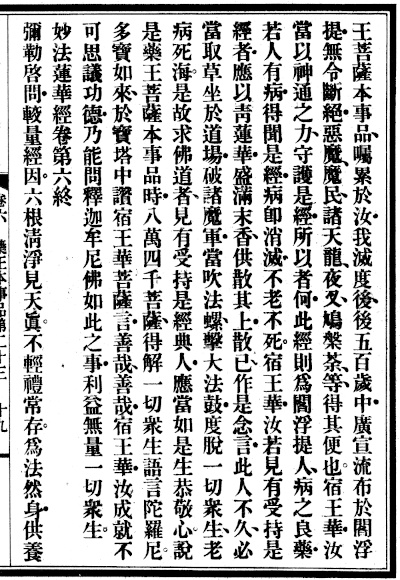 王菩薩本事品、囑累於汝。我滅度後後五百歲中、廣宣流布於閻浮
提、無令斷絕、惡魔、魔民、諸天龍、夜叉、鳩槃荼等、得其便也。宿王華、汝
當以神通之力、守護是經。所以者何、此經則為閻浮提人、病之良藥、
若人有病、得聞是經、病即消滅、不老不死。宿王華、汝若見有受持是
經者、應以青蓮華、盛滿末香、供散其上、散已、作是念言、此人不久、必
當取草坐於道場、破諸魔軍、當吹法螺、擊大法鼓、度脫一切眾生、老
病死海。是故求佛道者、見有受持是經典人、應當如是生恭敬心。說
是藥王菩薩本事品時、八萬四千菩薩、得解一切眾生語言陀羅尼。
多寶如來、於寶塔中、讚宿王華菩薩言、善哉善哉、宿王華、汝成就不
可思議功德、乃能問釋迦牟尼佛如此之事、利益無量一切眾生。
妙法蓮華經卷第六終
彌勒啓問、較量經因。六根清淨見天眞、不輕禮常存、為法然身、供養
卷六 藥王本事品第二十三 十九